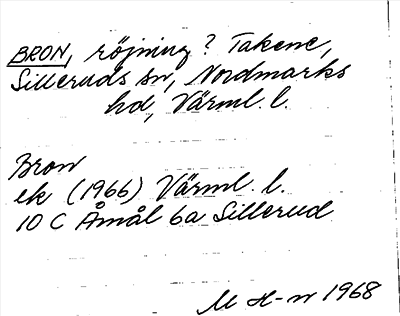 BRON, röjning? Takene,
Silleruds sn, Nordmarks
hd, Värml. l.
Bron
ek (1966) Värml. l.
10 C Åmål 6a Sillerud
M H-n 1968